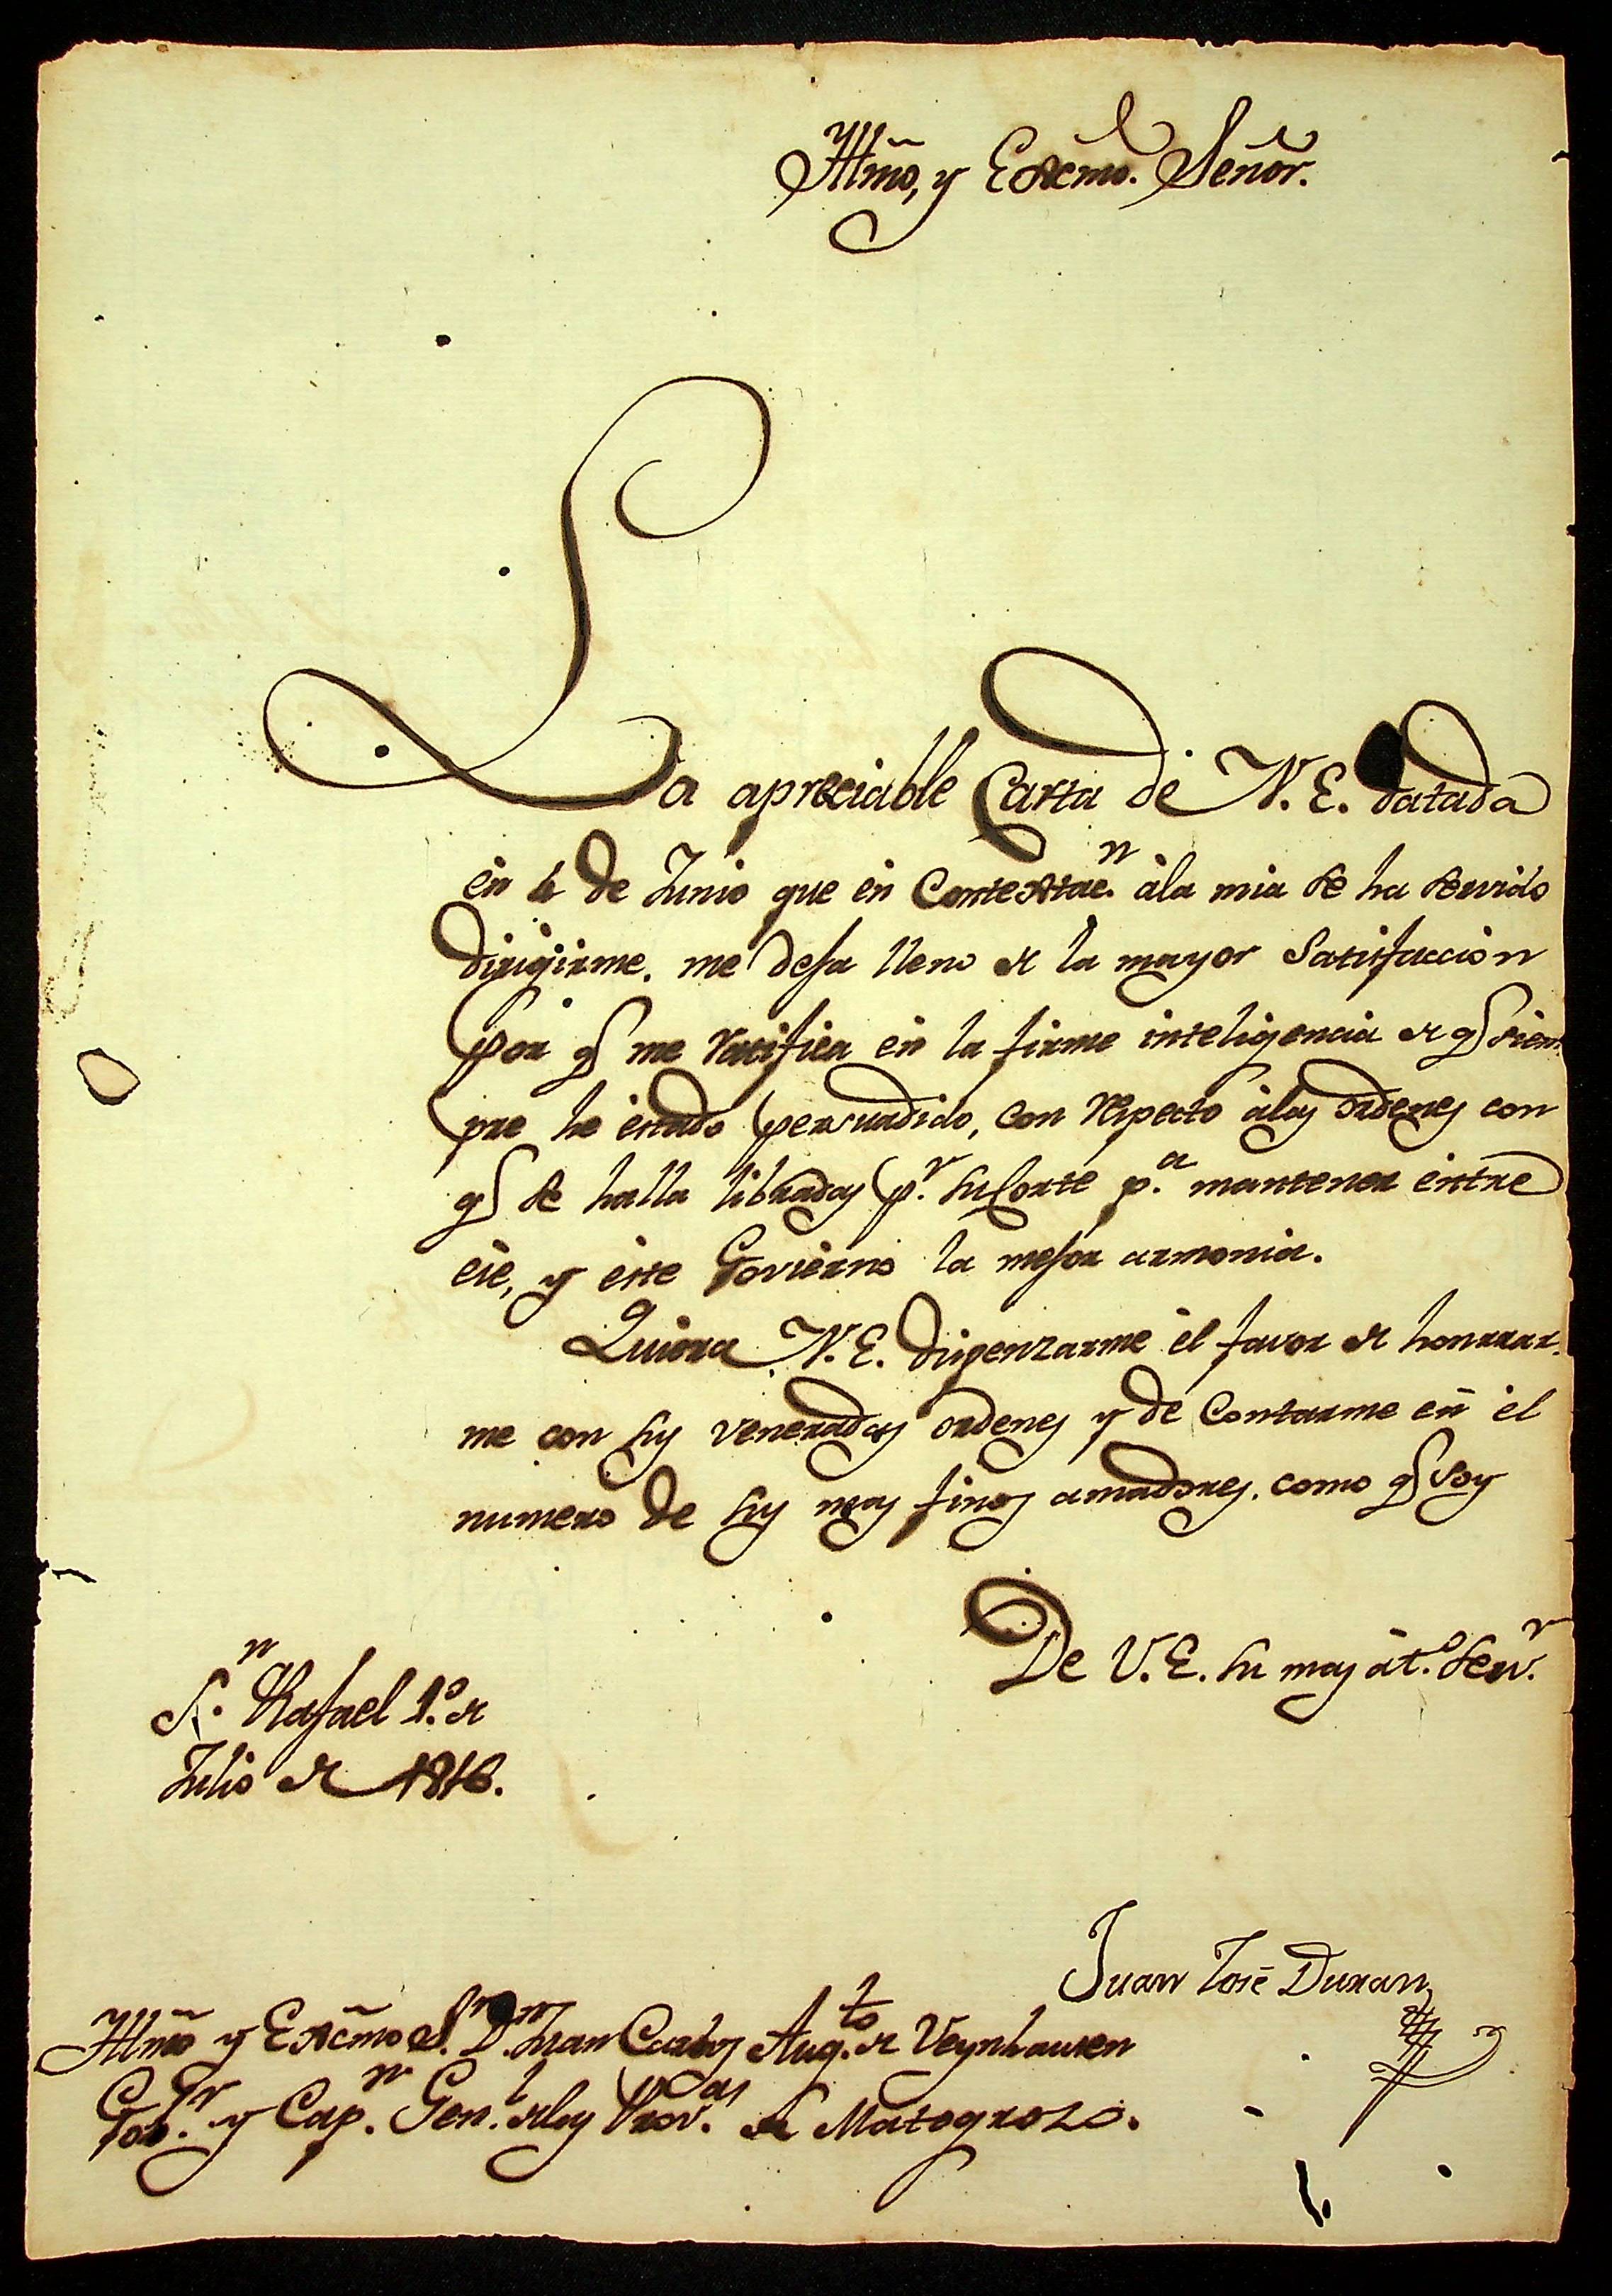 Yllmõ, y Excmo. Señor.
La apreciable Carta de V. E. datada
en 4 de Junio que en Contextac.n àla mia se ha servido
dirigirme, me deja lleno de la mayor Satisfaccion
por q.e me ratifica en la firme inteligencia de q.e siem-
pre he estado persuadido, con respecto àlas ordenes con
q.e se halla libradas p.r su Corte p.a mantener entre
ese, y este Govierno la mejor armonia.
Quiera V. E. dispenzarme el favor de honrrar-
me con sus veneradas ordenes y de Contarme en el
numero de sus mas finos amadores, como q.e soy
De V. E. su mas at.o serv.r
S.n Rafael 1.o de
Julio de 1816.
Juan José Duran
Yllmõ y Excmõ S.r D.n Juan Carlos Aug.to de Veynhausen
Gov.or y Cap.n Gen.l delas Prov.as de Matogrozo.